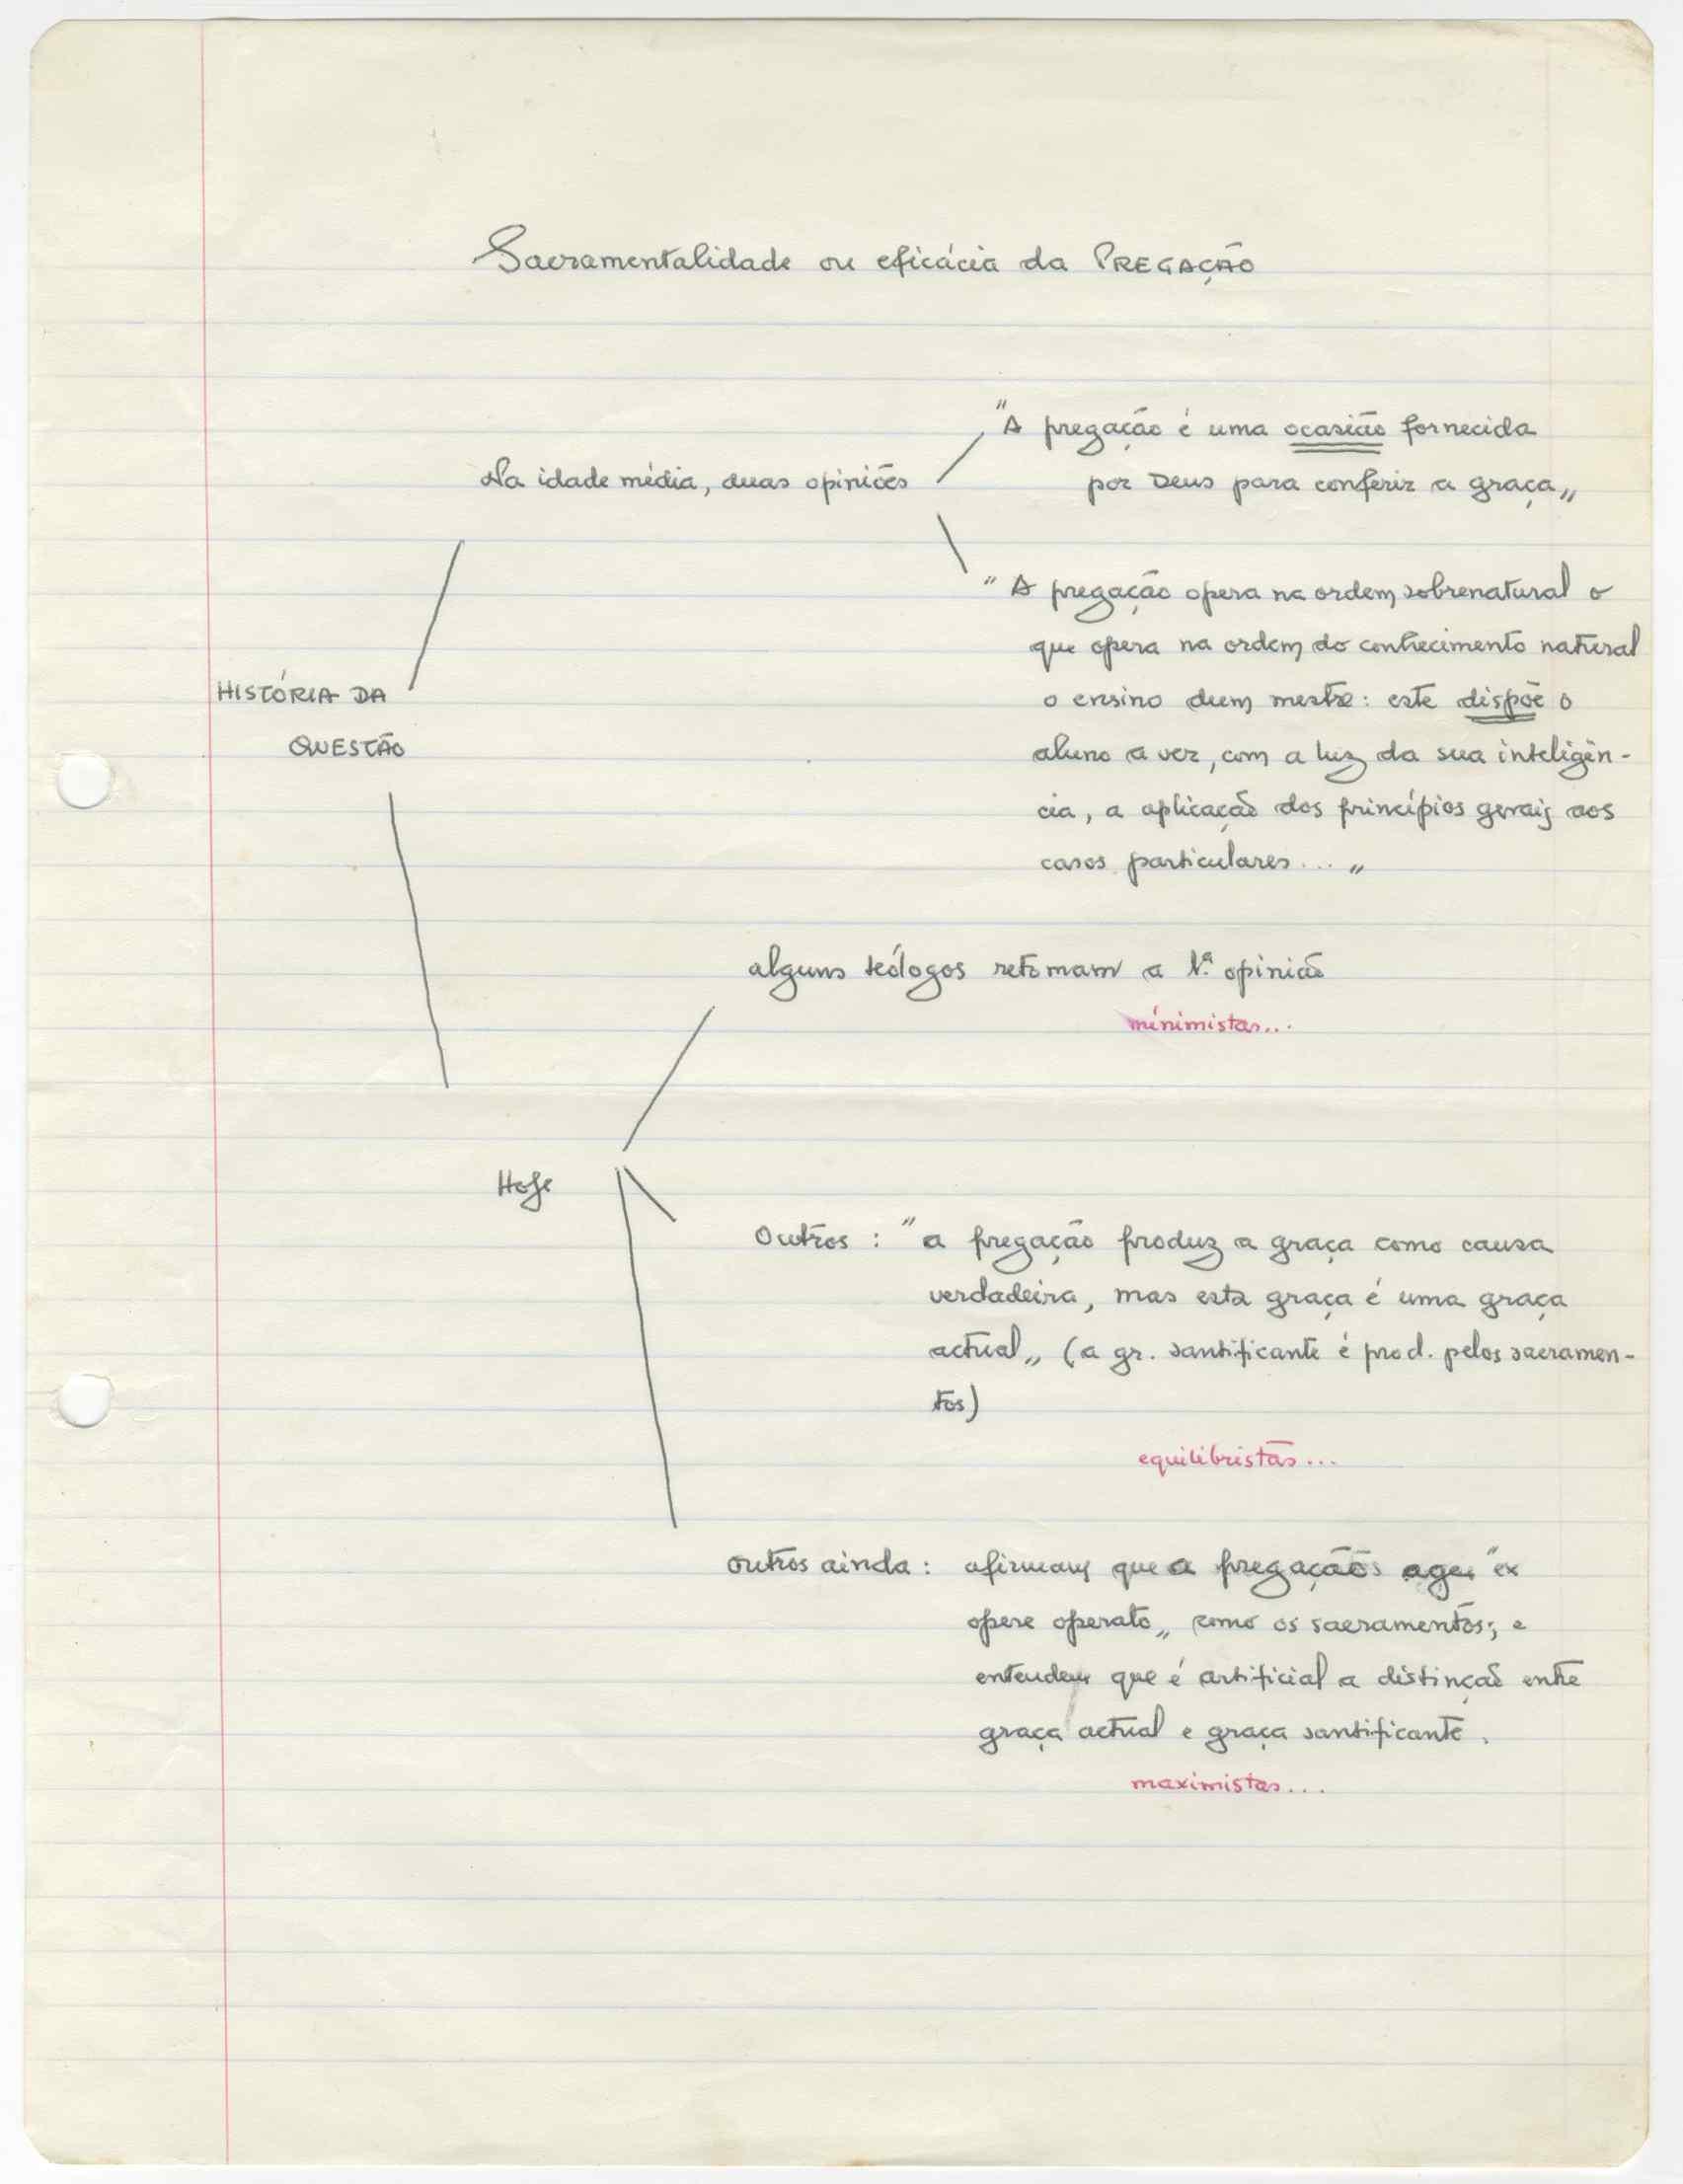 Sacramentalidade ou eficácia da PREGAÇÃO
"A pregação é uma ocasião fornecida
Na idade média, duas opiniões
por Deus para conferir a graça„
"A pregação opera na ordem sobrenatural o
que opera na ordem do conhecimento natural
HISTÓRIA DA
o ensino dum mestre: este dispõe o
QUESTÃO
aluno a ver, com a luz da sua inteligên-
cia, a aplicação dos princípios gerais aos
casos particulares... „
alguns teólogos retomam a 1ª. opinião
minimistas...
Hoje
Outros : "a pregação produz a graça como causa
verdadeira, mas esta graça é uma graça
actual„ (a gr. santificante é prod. pelos sacramen-
tos)
equilibristas...
outros ainda : afirmam que a pregação age "ex
opere operato„ como os sacramentos; e
entendem que é artificial a distinção entre
graça actual e graça santificante.
maximistas...